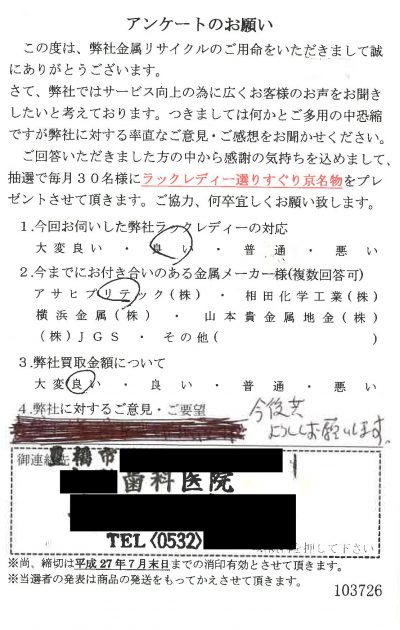 アンケートのお願い
この度は、弊社金属リサイクルのご用命をいただきまして誠
にありがとうございます。
さて、弊社ではサービス向上の為に広くお客様のお声をお聞き
したいと考えております。つきましては何かとご多用の中恐縮
ですが弊社に対する率直なご意見・ご感想をお聞かせください。
ご回答いただきました方の中から感謝の気持ちを込めまして、
抽選で毎月３０名様にラックレディー選りすぐり京名物をプレ
ゼントさせて頂きます。ご協力、何卒宜しくお願い致します。
1.今回お伺いした弊社ラックレディーの対応
大変良い・良い・普通・悪い
2.今までにお付き合いのある金属メーカー様(複数回答可)
アサヒプリテック(株)・相田化学工業(株)
横浜金属(株)・山本貴金属地金(株)
(株)JGS・その他( )
3.弊社買取金額について
大変良い・良い・普通・悪い
4.弊社に対するご意見・ご要望
今後共
よろしくお願いします。
御連絡先
豊橋市
歯科医院
TEL〈0532〉
を押して下さい
※尚、締切は平成27年7月末日までの消印有効とさせて頂きます。
※当選者の発表は商品の発送をもってかえさせて頂きます。
103726